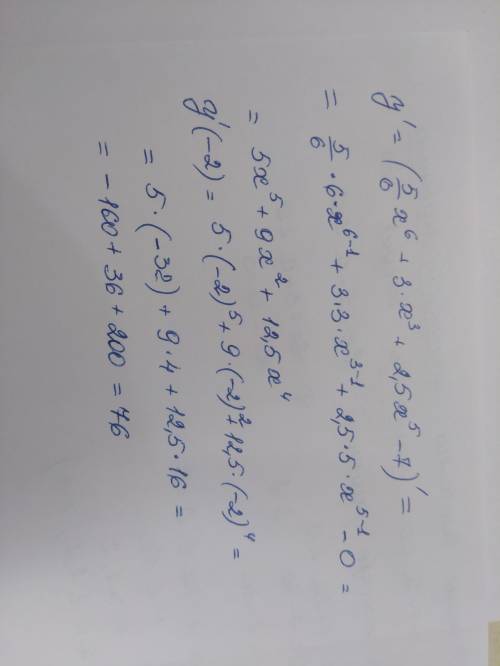 y' = (5/6 x⁶ + 3·x³ + 2,5x⁵ - 7)' =
= 5/6 · 6·x⁶⁻¹ + 3·3·x³⁻¹ + 2,5·5·x⁵⁻¹ - 0 =
= 5x⁵ + 9x² + 12,5x⁴
y'(-2) = 5·(-2)⁵ + 9·(-2)² + 12,5·(-2)⁴ =
= 5·(-32) + 9·4 + 12,5·16 =
= -160 + 36 + 200 = 76